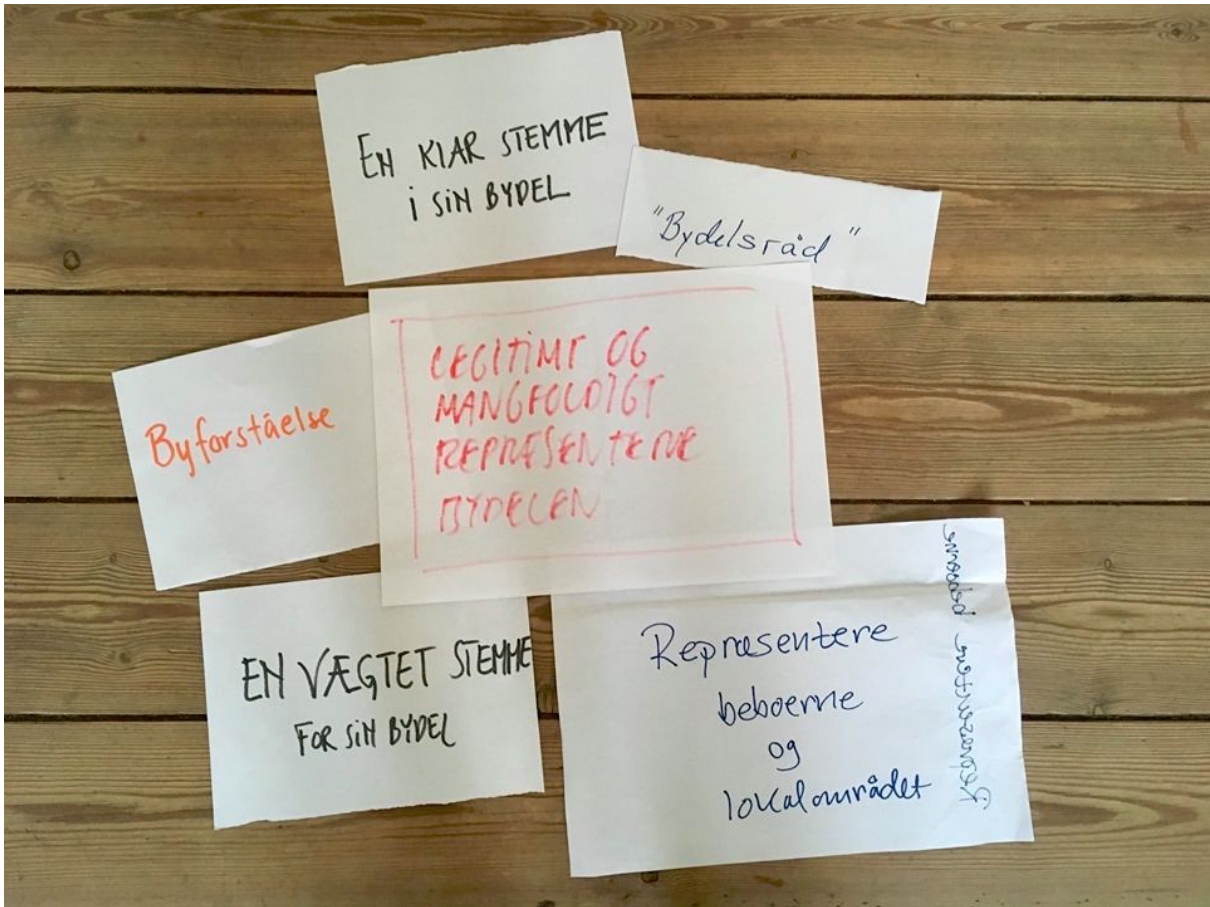 EN KLAR STEMME
i SIN BYDEL
"Bydelsråd"
LEGITIMT OG
MANGFOLDIGT
REPRÆSENTERE
BYDELEN
Byforståelse
EN VÆGTET STEMME
FOR SIN BYDEL
Repræsentere
beboerne
og
lokalområdet
Repræsentere